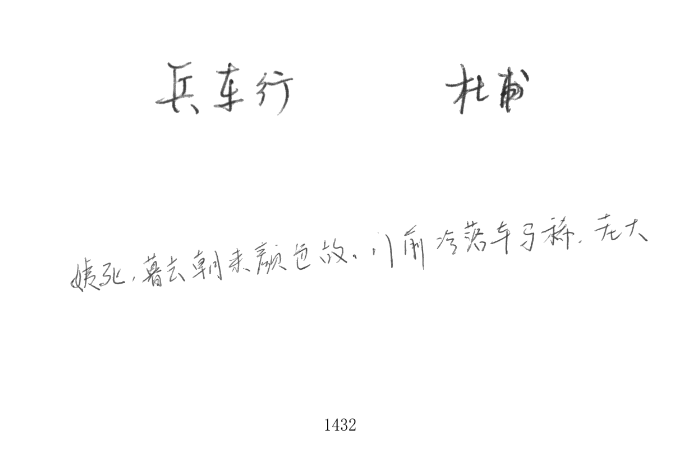 兵车行 杜甫
姨死,暮去朝来颜色故。门前冷落车马稀,老大
1432